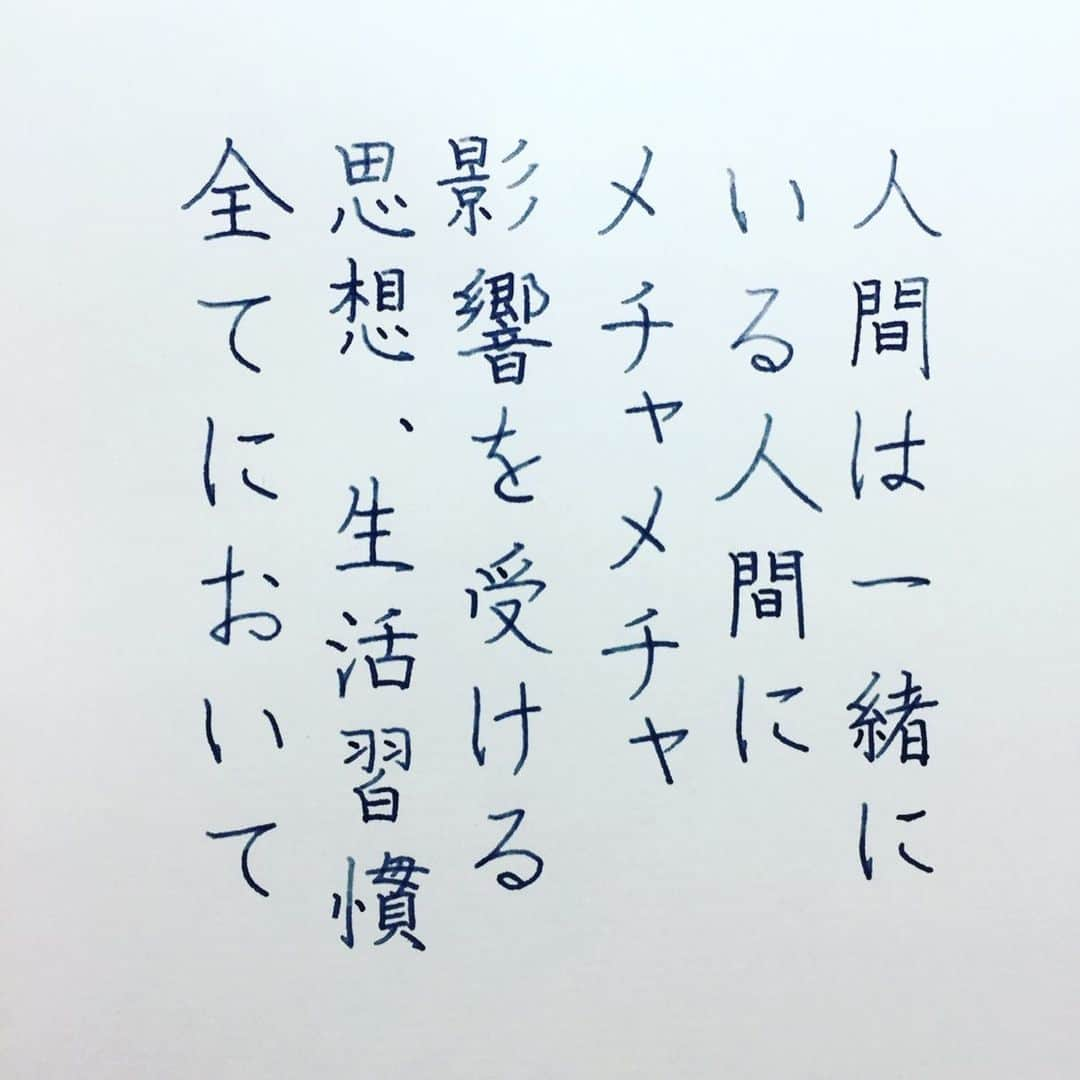 人間は一緒に
いる人間に
メチャメチャ
影響を受ける
思想、生活習慣
全てにおいて